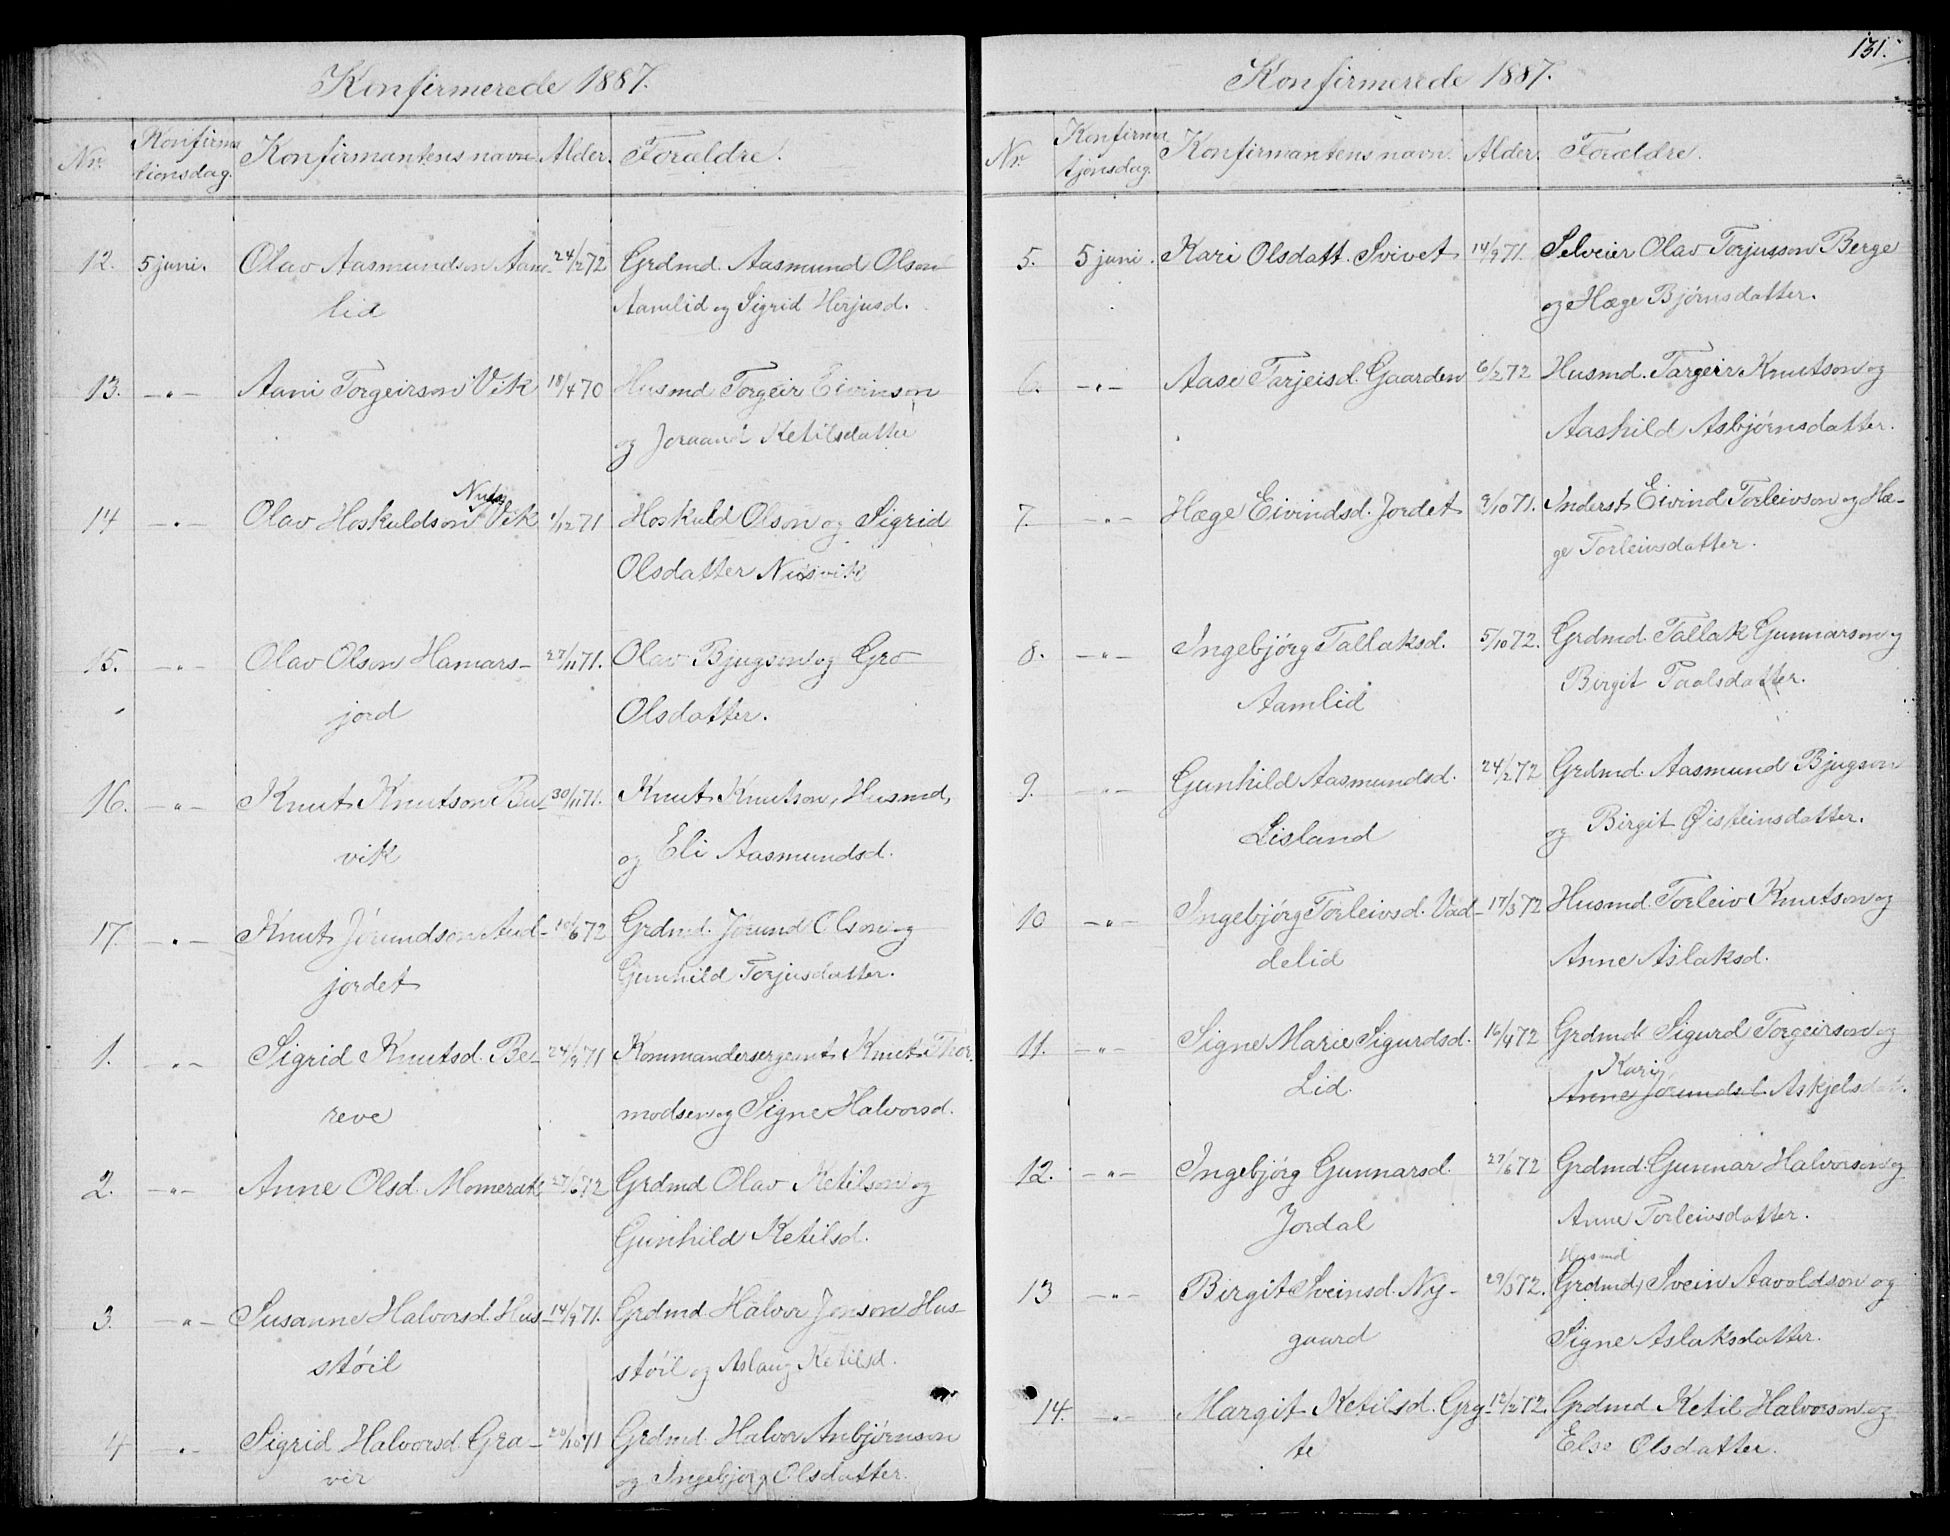 Konfirmerede 1887.
Nr. Konfirma Konfirmantens navn Alder. Forældre.
tionsdag.
12. 5 juni. Olav Aasmundson Aam- 24/2 72 Grdmd. Aasmund Olson
lid Aamlid og Sigrid Herjusd.
13. -"- Aani Torgeirson Vik 18/4 70 Husmd Torgeir Eivinson
og Joraand Ketilsdatter
Nus
14 -"- Olav Hoskuldson Vik 1/12 71 Hoskuld Olson og Sigrid
Olsdatter Nusvik
15. -"- Olav Olson Hamars- 27/11 71. Olav Bjugson og Gro
jord Olsdatter.
16. -"- Knut Knutson Bu- 30/11 71. Knut Knutson, Husmd,
vik og Eli Aasmundsd.
17. -"- Knut Jórundson Aud- 10/6 72 Grdmd. Jórund Olson og
jordet Gunhild Torjusdatter.
1. -"- Sigrid Knutsd. Be- 24/9 71 Kommandersergeant Knut Thor-
reve modsen og Signe Halvorsd.
2. -"- Anne Olsd. Momerak 27/6 72 Grdmd Olav Ketilson og
Gunhild Ketilsd.
3. -"- Susanne Halvorsd. Hus- 14/9 71. Grdmd Halvor Jonson Hus-
stóil stóil og Aslaug Ketilsd.
4 "- Sigrid Halvorsd. Gra- 20/10 71 Grdmd. Halvor Anbjórnson
vir og Ingebjorg Olsdatter.
131.
Konfirmerede 1887.
Nr. Konfirma Konfirmantens navn. Alder. Forældre.
tjonsdag.
5. 5 juni. Kari Olsdatt. Svivet 14/9 71. Selveier Olav Torjusson Berge
og Hæge Bjørnsdatter.
6. -"- Aase Tarjeisd. Gaarden 6/2 72 Husmd. Targeir Knutson og
Aashild Asbjørnsdatter.
7. -"- Hæge Eivindsd. Jordet 9/10 71. Inderst Eivind Torleivson og Hæ-
ge Torleivsdatter.
8. -"- Ingebjórg Tallaksd. 5/10 72. Grdmd. Tallak Gunnarson og
Aamlid Birgit Taalsdatter.
9. -"- Gunhild Aasmundsd. 24/2 72 Grdmd. Aasmund Bjugson
Lisland og Birgit Øisteinsdatter.
10 -"- Ingebjórg Torleivsd. Vad- 17/3 72 Husmd. Torleiv Knutson og
delid Anne Aslaksd.
11. -"- Signe Marie Sigurdsd. 16/4 72 Grdmd. Sigurd Torgeirson og
Kari
Lid. Anne Jórundsd. Askjelsdat.
12. -"- Ingebjórg Gunnarsd. 27/6 72 Grdmd. Gunnar Halvorson og
Jordal Anne Torleivsdatter.
Husmd
13 -"- Birgit Sveinsd. Ny- 29/3 72. Grdmd, Svein Aavoldson og
gaard Signe Aslaksdatter.
14. -"- Margit Ketilsd. Gry- 12/2 72. Grdmd Ketil Halvorson og
te Else Olsdatter.